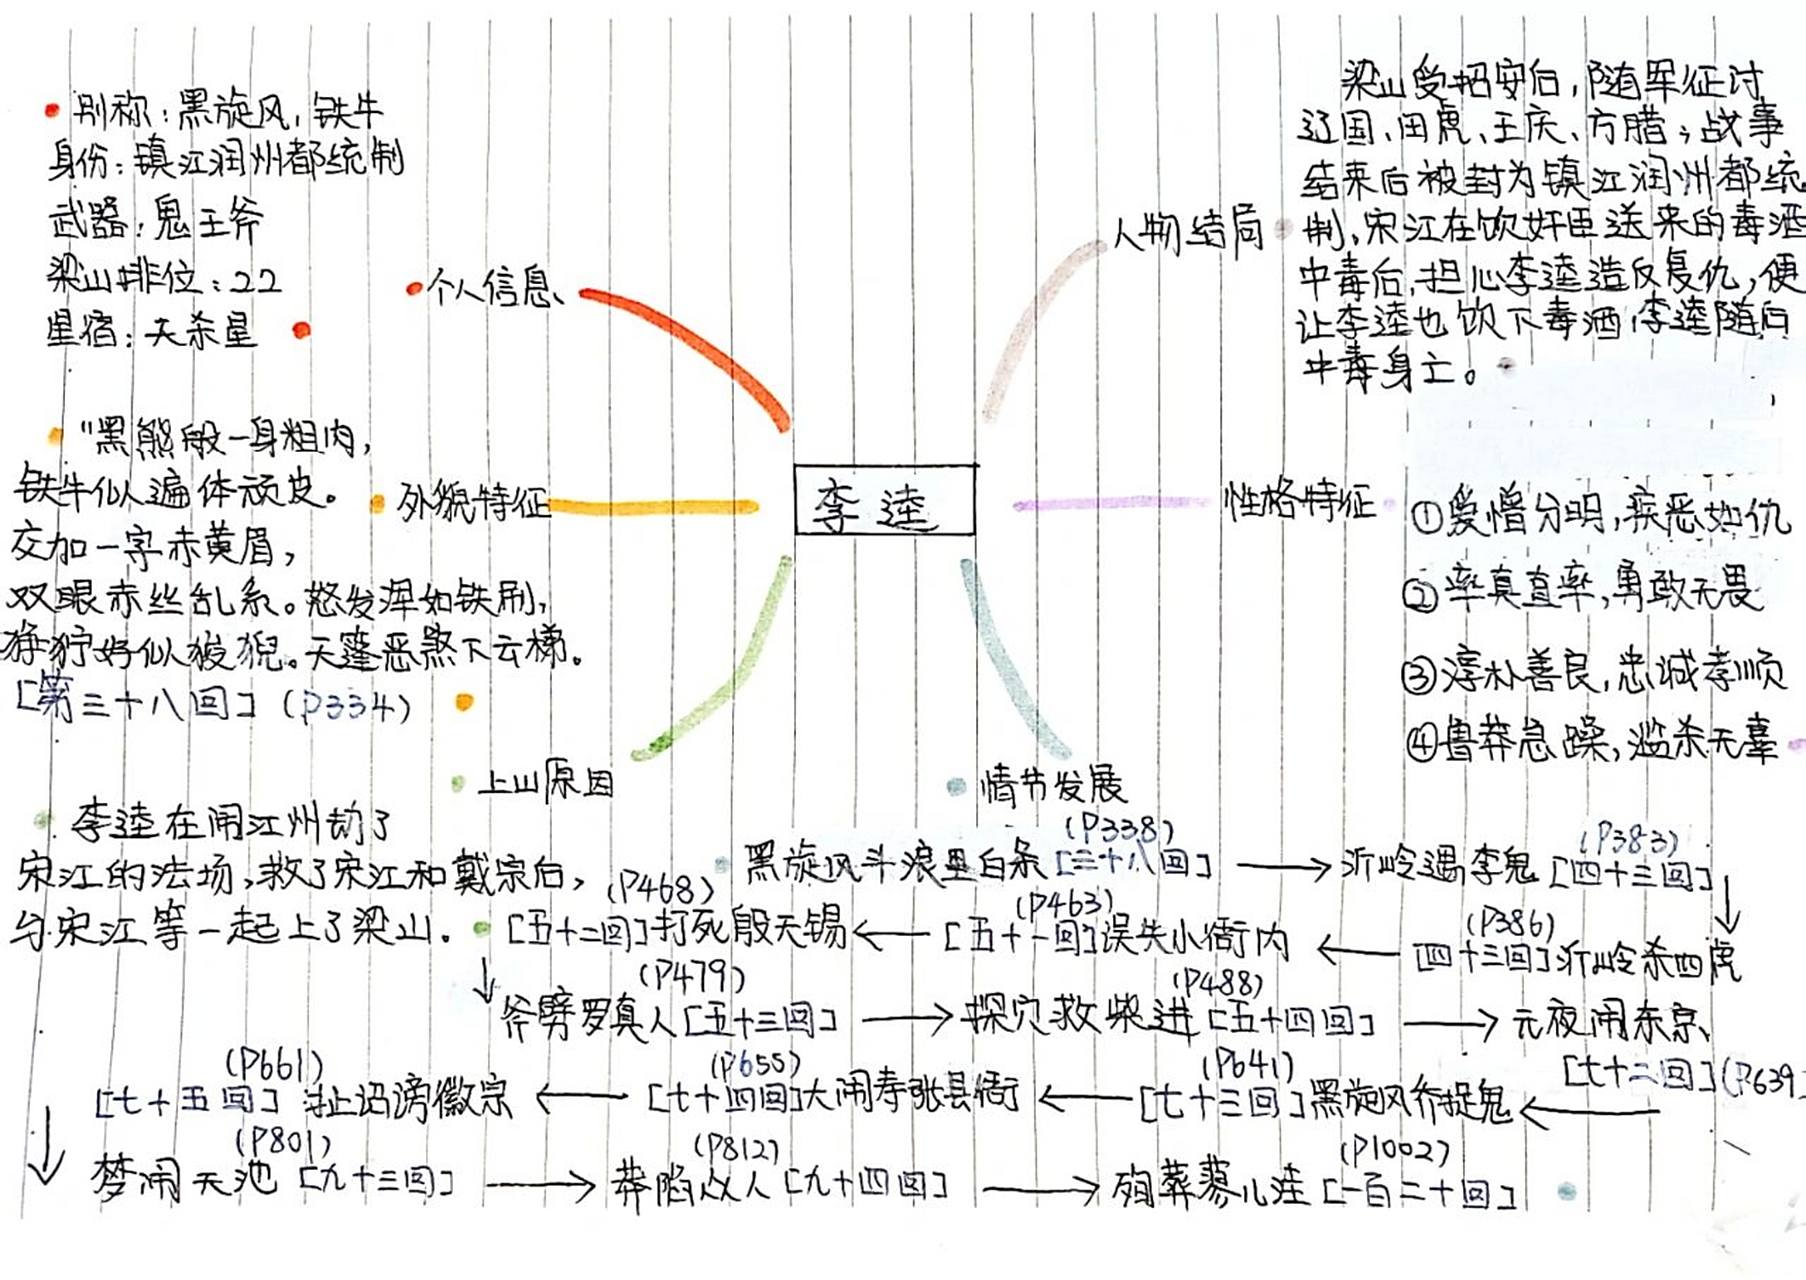 李逵
个人信息
别称：黑旋风，铁牛
身份：镇江润州都统制
武器：鬼王斧
梁山排位：22
星宿：天杀星
外貌特征
"黑熊般一身粗肉，
铁牛似遍体顽皮。
交加一字赤黄眉，
双眼赤丝乱系。怒发浑如铁刷，
狰狞好似狻猊。天蓬恶煞下云梯。
[第三十八回]（P334）
上山原因
李逵在闹江州劫了
宋江的法场，救了宋江和戴宗后，
与宋江等一起上了梁山。
人物结局
梁山受招安后，随军征讨
辽国、田虎、王庆、方腊，战事
结束后被封为镇江润州都统
制，宋江在饮奸臣送来的毒酒
中毒后，担心李逵造反复仇，便
让李逵也饮下毒酒，李逵随后
中毒身亡。
性格特征
①爱憎分明，疾恶如仇
②率真直率，勇敢无畏
③淳朴善良，忠诚孝顺
④鲁莽急躁，滥杀无辜
情节发展
黑旋风斗浪里白条[三十八回]（P338）
→沂岭遇李鬼[四十三回]（P383）
[四十三回]沂岭杀四虎（P386）
[五十一回]误失小衙内（P463）
[五十二回]打死殷天锡（P468）
斧劈罗真人[五十三回]（P479）
→探穴救柴进[五十四回]（P488）
→元夜闹东京
[七十二回]（P639）
[七十三回]黑旋风乔捉鬼（P641）
[七十四回]大闹寿张县衙（P655）
[七十五回]扯诏谤徽宗（P661）
梦闹天池[九十三回]（P801）
→莽陷众人[九十四回]（P812）
→殉葬蓼儿洼[一百二十回]（P1002）